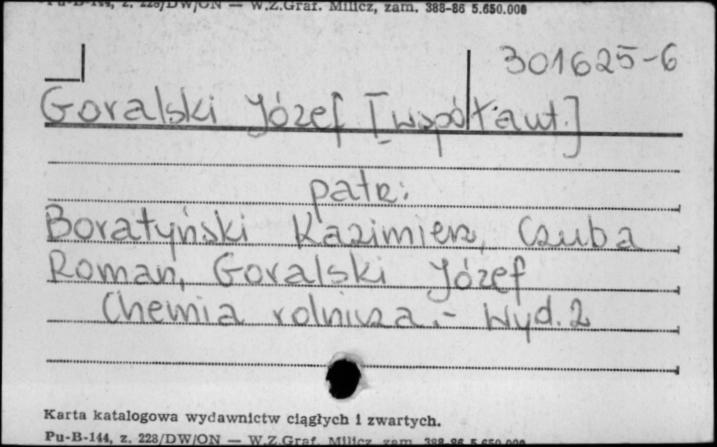 Pu-B-144, z. 228/DW/ON — W.Z.Graf. Milicz, zam. 388-86 5.650.000
301625-6
Goralski Józef [współaut.]
patrz:
Boratyński Kazimierz, Czuba
Roman, Goralski Józef
Chemia rolnicza.- Wyd. 2
Karta katalogowa wydawnictw ciągłych i zwartych.
Pu-B-144, z. 228/DW/ON — W.Z.Graf. Milicz zam. 388-86 5.650.000